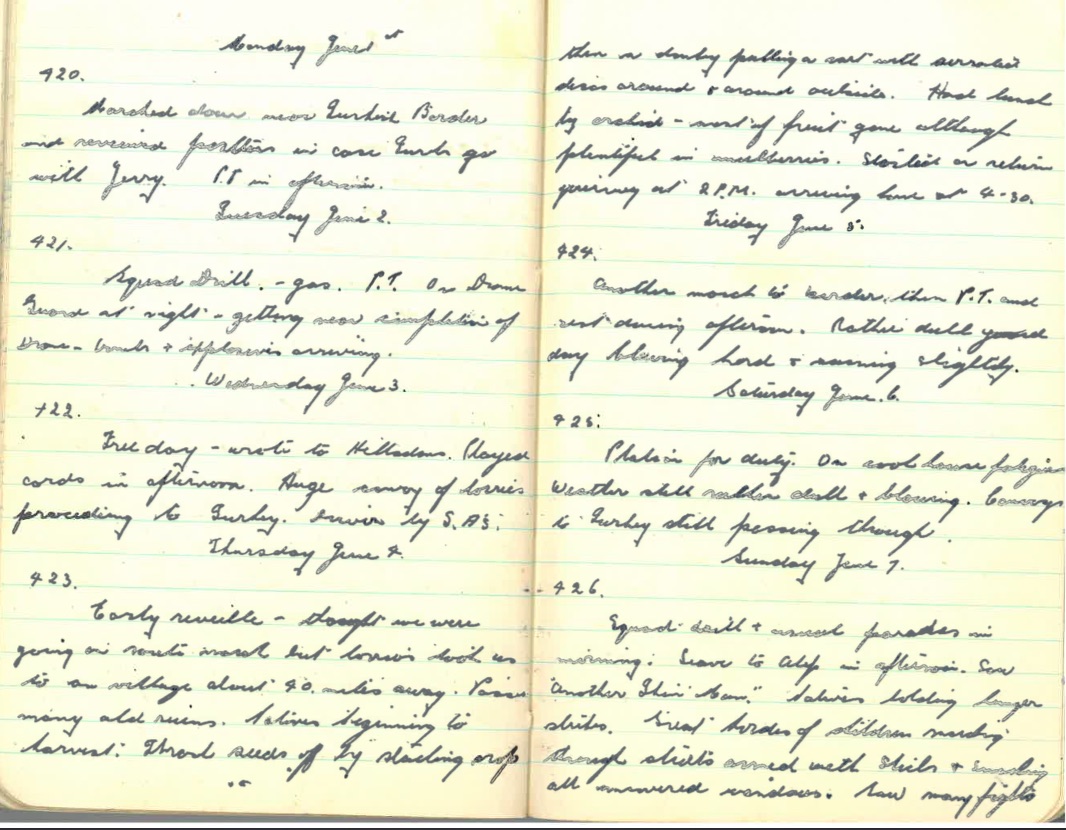 Monday June 1st
420.
Marched down near Turkish Border
and reviewed positions in case Turks go
with Jerry. P.T in afternoon.
Tuesday June 2.
421.
Squad Drill. - gas. P.T. On Drome
Guard at night - getting near completion of
Drome - bombs + explosives arriving.
Wednesday June 3.
422.
Free day - wrote to . Played
cards in afternoon. Huge convoy of lorries
proceeding to Turkey. Driven by S. A's.
Thursday June 4.
423.
Early reveille - thought we were
going on route march but lorries took us
to an village about 40. miles away. Passed
many old ruins. Natives beginning to
harvest. Thrash seeds off by stacking crop
then a donkey pulling a cart with serrated
discs around & around outside. Had lunch
by orchid - most of fruit gone although
plentiful in mulberries. Started on return
journey at 2 P.M. arriving home at 4-30.
Friday June 5.
424.
Another march to border, then P.T. and
rest during afternoon. Rather dull
day blowing hard & raining slightly.
Saturday June. 6.
425.
Platoon for duty. On cook house fatigue
Weather still rather dull + blowing. Convoys
to Turkey still passing though.
Sunday June 7.
426.
Squad drill + usual parades in
morning. Leave to Alep in afternoon. Saw
"Another Thin Man." Natives holding hunger
strikes. Great hordes of children marching
through streets armed with sticks + smashing
all uncovered windows. Saw many fights